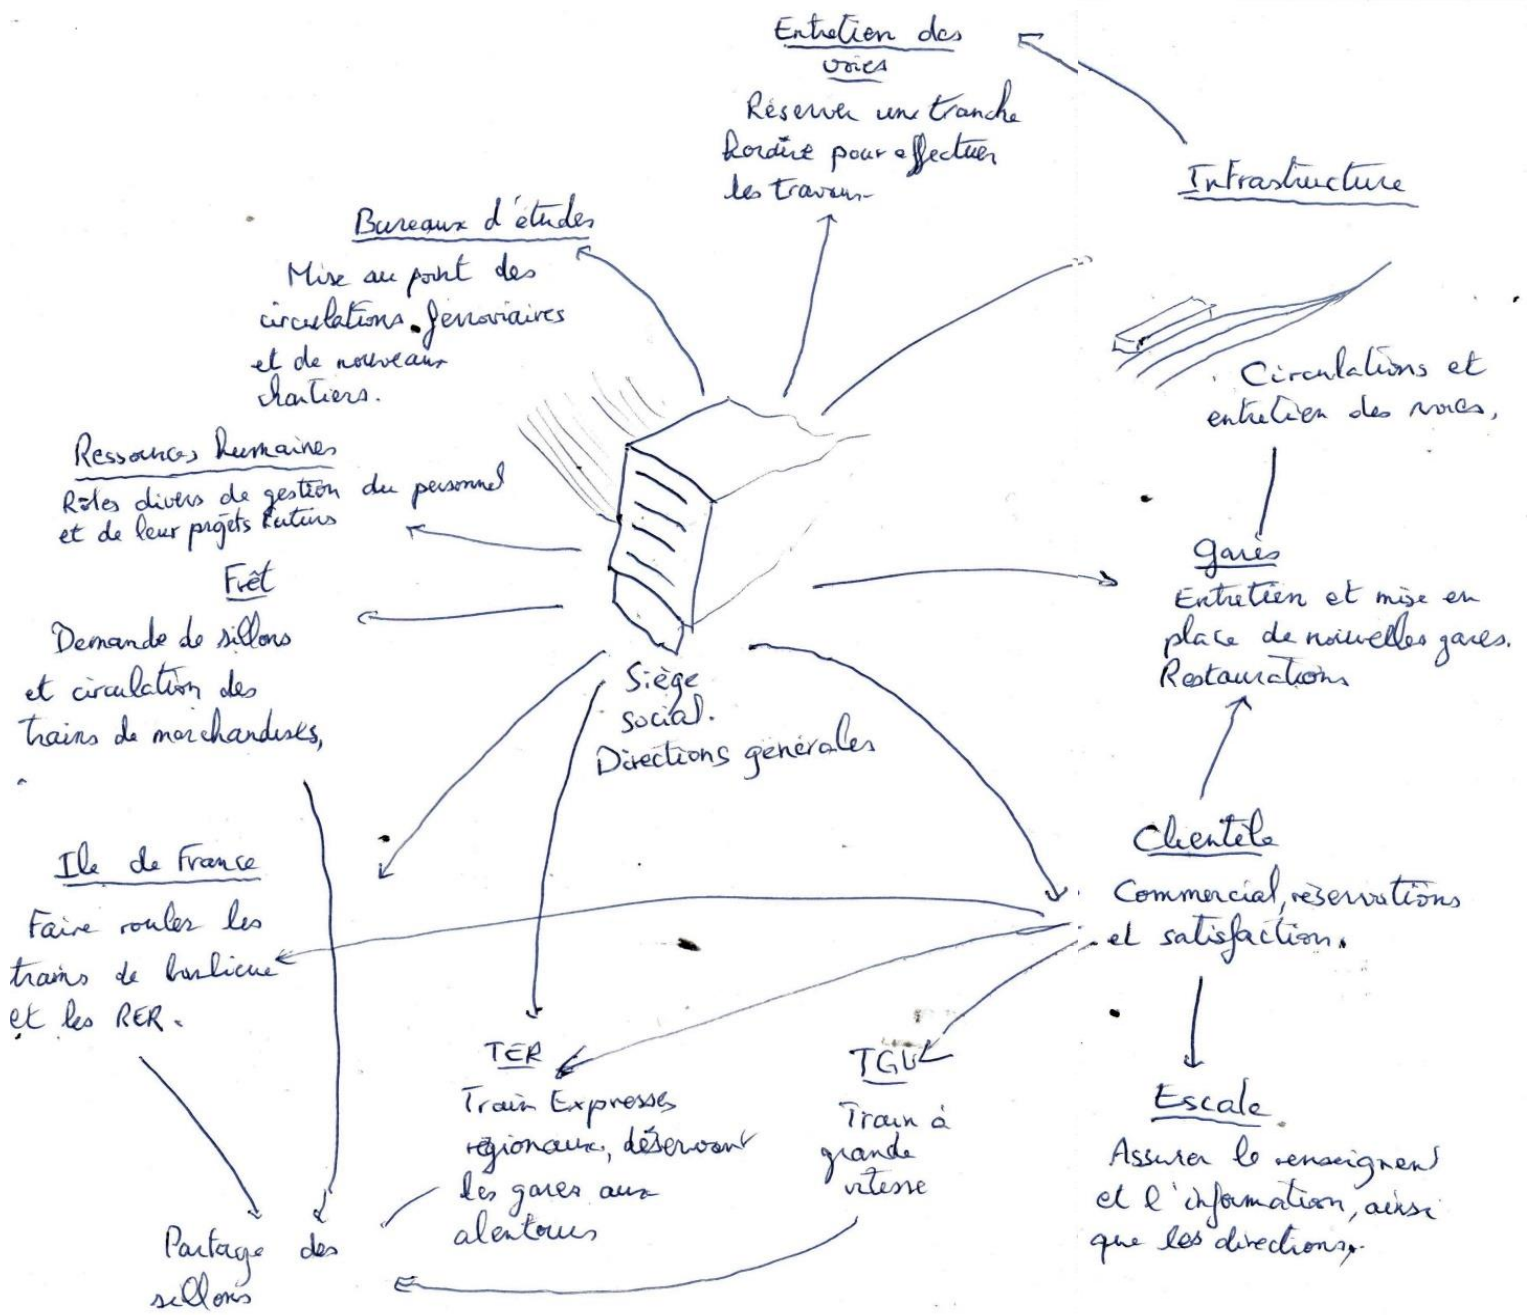 Entretien des
voies
Réserver une tranche
horaire pour effectuer
les travaux
Infrastructure
Circulations et
entretien des voies,
Bureaux d'études
Mise au point des
circulations ferroviaires
et de nouveaux
chantiers.
Ressources humaines
Rôles divers de gestion du personnel
et de leur projets futurs
Frêt
Demande de sillons
et circulation des
trains de marchandises,
Siège
social.
Directions générales
Gares
Entretien et mise en
place de nouvelles gares.
Restaurations
Clientèle
Commercial, réservations
et satisfaction.
Ile de France
Faire rouler les
trains de banlieue
et les RER.
TER
Train Expresses
régionaux, déservant
les gares aux
alentours
TGV
Train à
grande
vitesse
Escale
Assurer le renseignent
et l'information, ainsi
que les directions.
Partage des
sillons